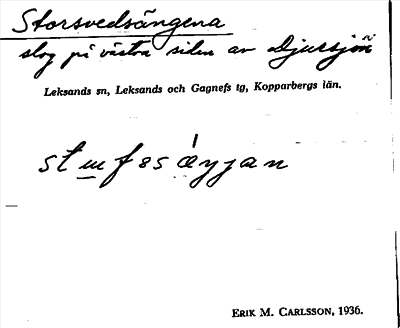 Storsvedsängena
slog på västra sidan av Djursjön
Leksands sn, Leksands och Gagnefs tg, Kopparbergs län.
ERIK M. CARLSSON, 1936.